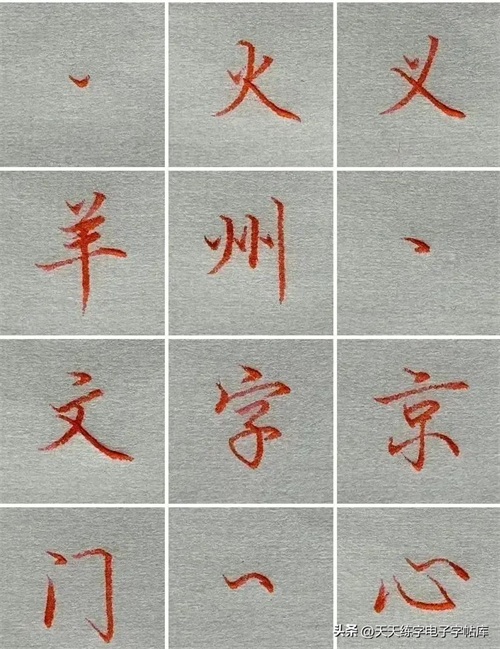 丶 火 义
羊 州 丶
文 字 京
门 ㇀ 心
头条 @天天练字电子字帖库